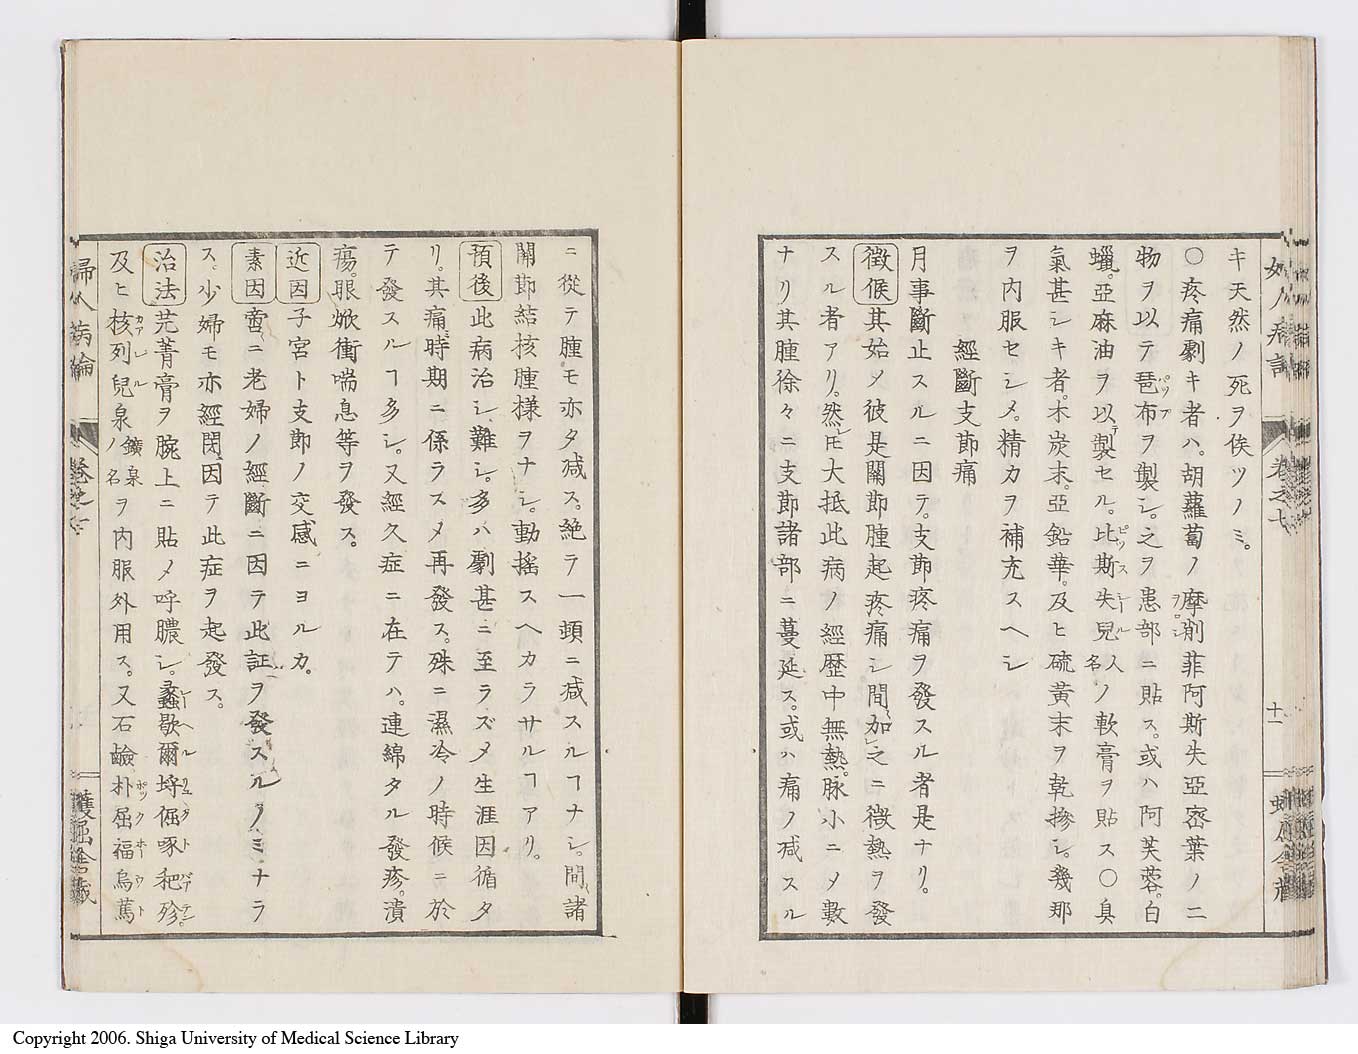 キ天然ノ死ヲ俟ツノミ。
〇疼痛劇キ者ハ。胡蘿蔔ノ摩剤菲阿斯失亞宻葉ノ二
物ヲ以テ琶布ヲ製シ。之ヲ患部ニ貼ス。或ハ阿芙蓉。白
蠟。亞麻油ヲ以テ製セル。比斯失兒人名ノ軟膏ヲ貼ス〇臭
氣甚シキ者。木炭末。亞鉛華。及ヒ硫黄末ヲ乾摻シ。幾那
ヲ内服セシメ。精力ヲ補充スヘシ
經斷支節痛
月事斷止スルニ因テ。支節疼痛ヲ發スル者是ナリ。
徴候其始メ彼是關節腫起疼痛シ間、加之ニ微熱ヲ發
スル者アリ。然レ𪜈大抵此病ノ經歴中無熱。脉小ニメ數
ナリ其腫徐々ニ支節諸部ニ蔓延ス。或ハ痛ノ减スル
ニ從テ腫モ亦タ减ス。絶テ一頭ニ减スルヿナシ。間、諸
關節結核腫様ヲナシ。動揺スヘカラサルヿアリ。
預後此病治シ難シ。多ハ劇甚ニ至ラズメ生涯因循タ
リ。其痛、時期ニ係ラスメ再發ス。殊ニ濕冷ノ時候ニ於
テ發スルヿ多シ。又經久症ニ在テハ。連綿タル發疹。潰
瘍。眼焮衝喘息等ヲ發ス。
近因子宮ト支節ノ交感ニヨルカ。
素因啻ニ老婦ノ經斷ニ因テ此証ヲ發スルノミナラ
ス、少婦モ亦經閉因テ此症ヲ起發ス。
治法芫菁膏ヲ腕上ニ貼メ呼膿シ。蠡歇爾埓倔啄秅殄。
及ヒ核列兒泉ノ鑛泉名ヲ内服外用ス。又石鹼朴屈福烏篤
婦人病論
卷之七
十一